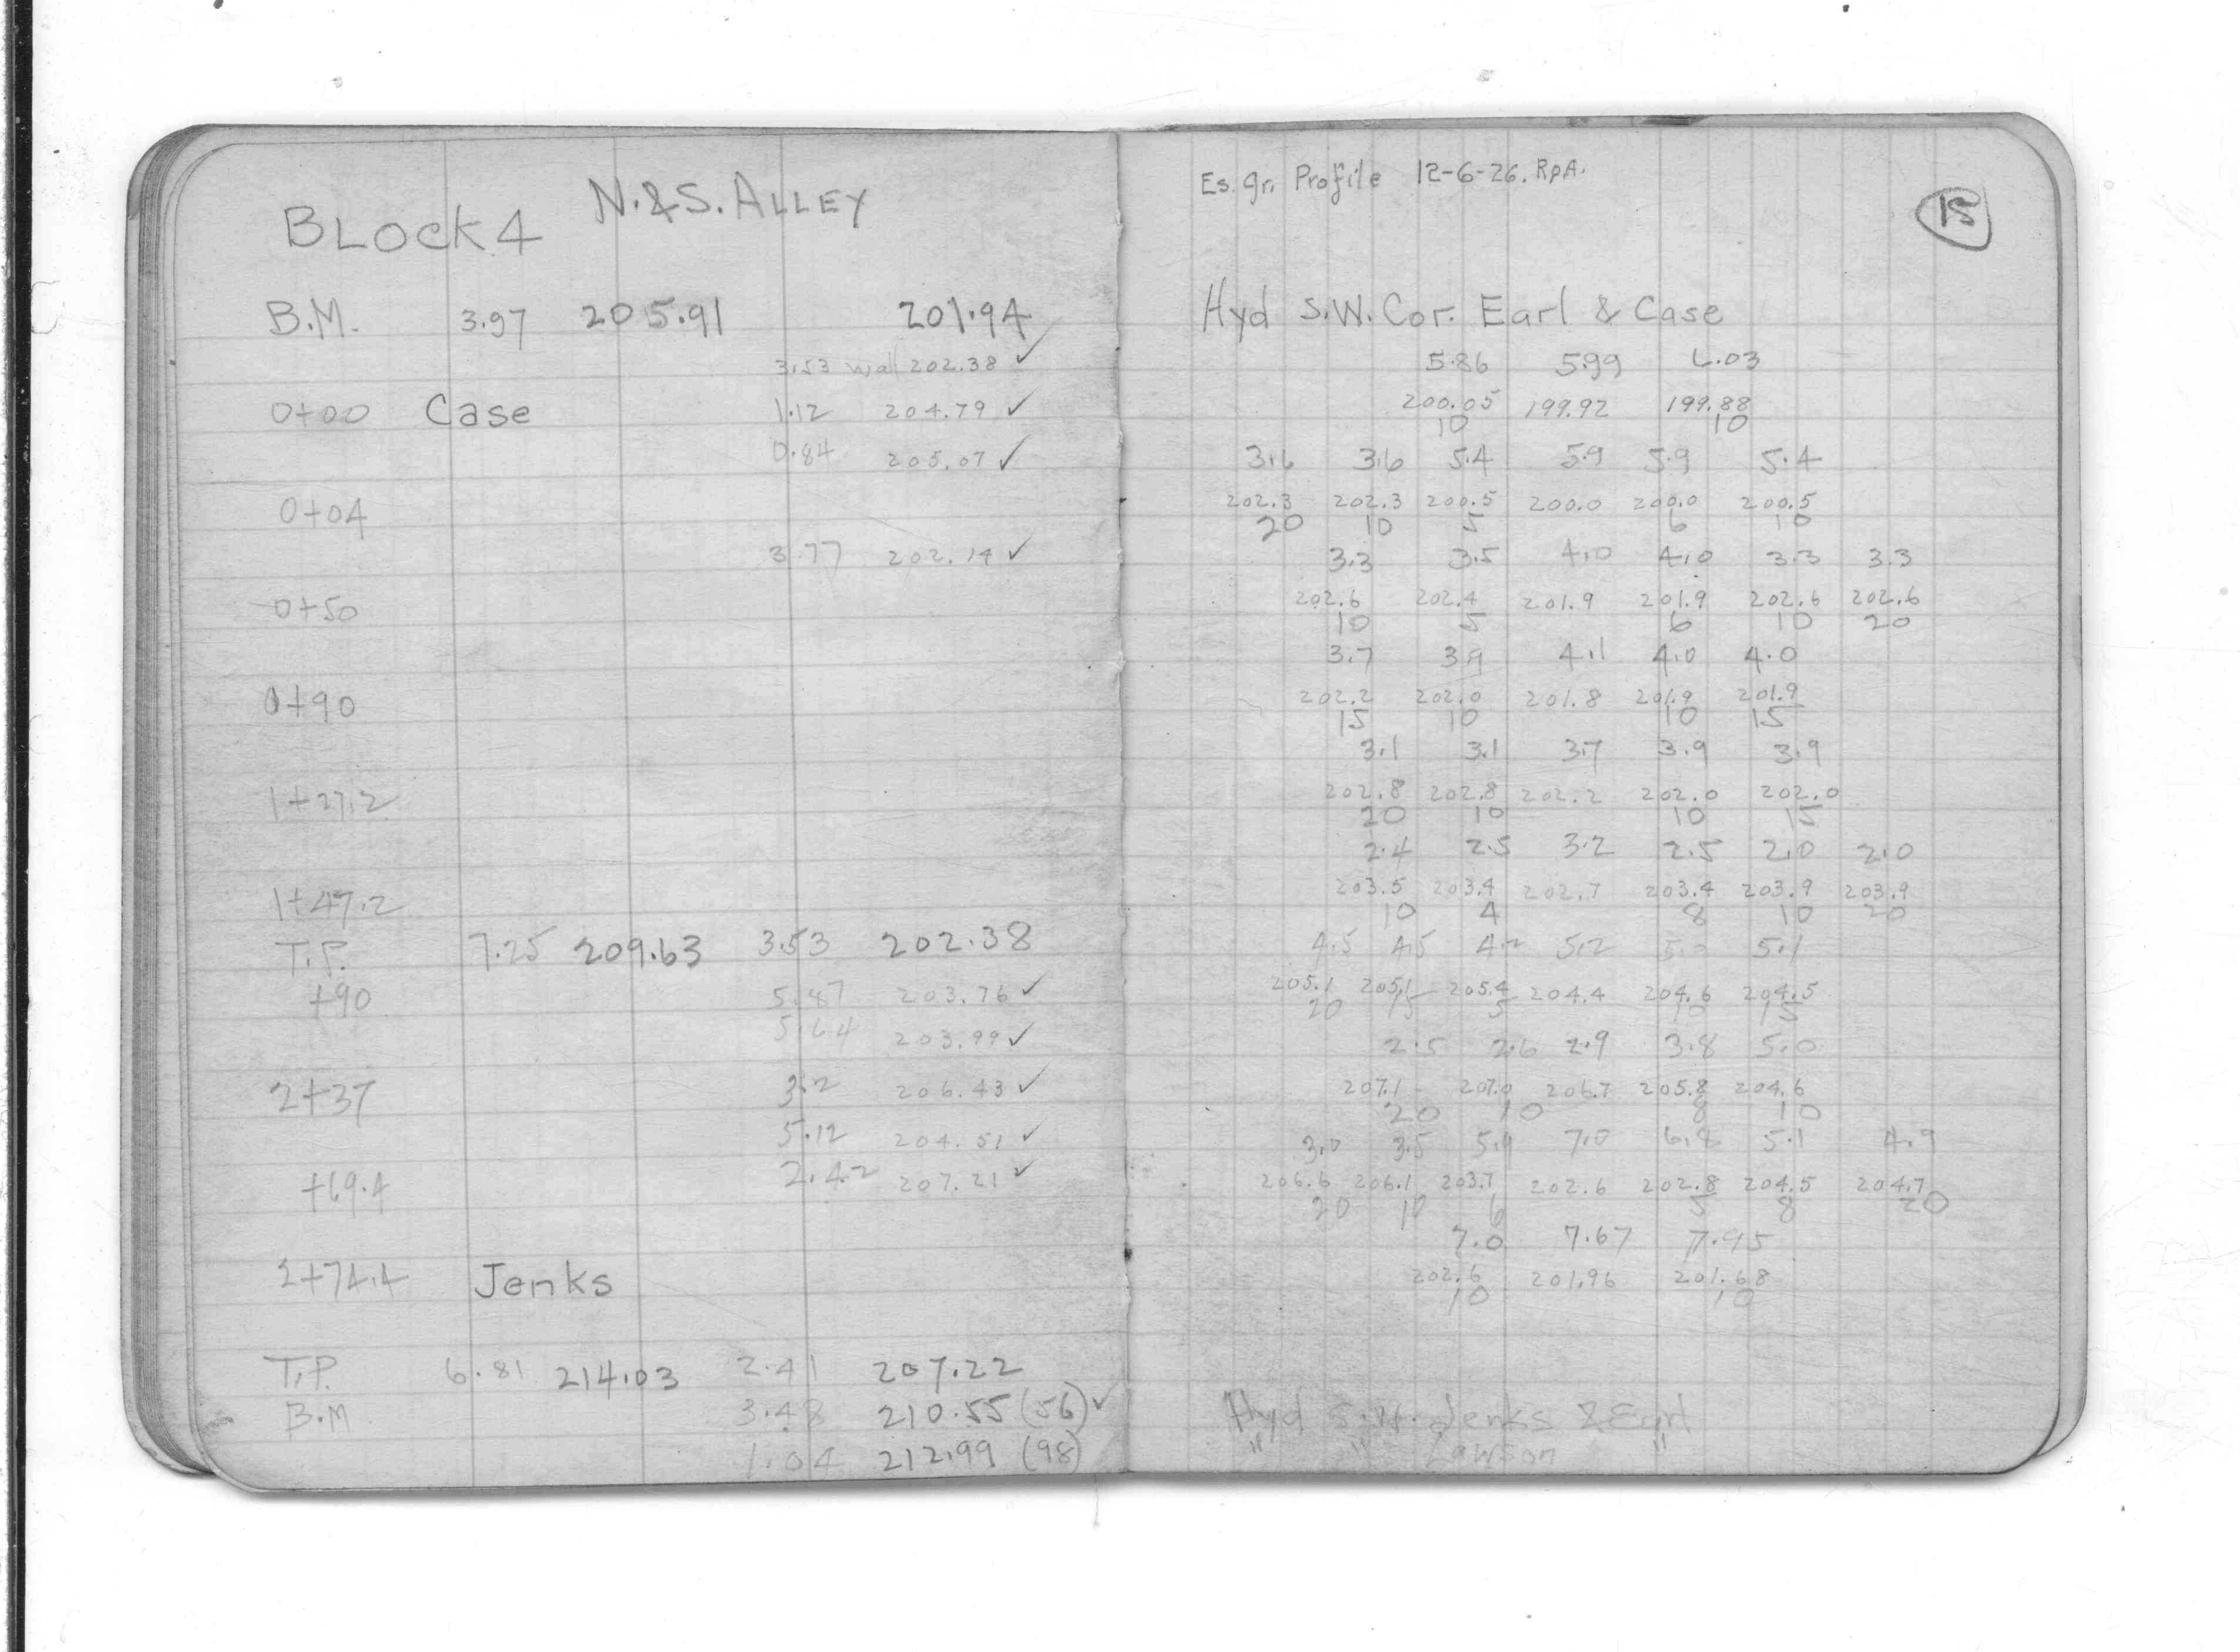 BLOCK 4 N.&S. ALLEY
B.M. 3.97 205.91 201.94
3.53 wal 202.38 ✓
0+00 Case 1.12 204.79 ✓
0.84 205.07 ✓
0+04
3.77 202.14 ✓
0+50
0+90
1+27.2
1+47.2
T.P. 7.25 209.63 3.53 202.38
+90 5.87 203.76 ✓
5.64 203.99 ✓
2+37 3.2 206.43 ✓
5.12 204.51 ✓
+69.4 2.42 207.21 ✓
2+74.4 Jenks
T.P. 6.81 214.03 2.41 207.22
B.M 3.48 210.55 (56) ✓
1.04 212.99 (98)
Es. gr. Profile 12-6-26. RpA.
15
Hyd S.W. Cor. Earl & Case
5.86 5.99 6.03
200.05 199.92 199.88
10 10
3.6 3.6 5.4 5.9 5.9 5.4
202.3 202.3 200.5 200.0 200.0 200.5
20 10 5 6 10
3.3 3.5 4.0 4.0 3.3 3.3
202.6 202.4 201.9 201.9 202.6 202.6
10 5 6 10 20
3.7 3.9 4.1 4.0 4.0
202.2 202.0 201.8 201.9 201.9
15 10 10 15
3.1 3.1 3.7 3.9 3.9
202.8 202.8 202.2 202.0 202.0
20 10 10 15
2.4 2.5 3.2 2.5 2.0 2.0
203.5 203.4 202.7 203.4 203.9 203.9
10 4 8 10 20
4.5 4.5 4.2 5.2 5.0 5.1
205.1 205.1 205.4 204.4 204.6 204.5
20 15 5 10 15
2.5 2.6 2.9 3.8 5.0
207.1 207.0 206.7 205.8 204.6
20 10 8 10
3.0 3.5 7.0 6.8 5.1 4.9
206.6 206.1 203.7 202.6 202.8 204.5 204.7
20 10 6 5 8 20
7.0 7.67 7.95
202.6 201.96 201.68
10 10
Hyd Jenks & Earl
" " Lawson "